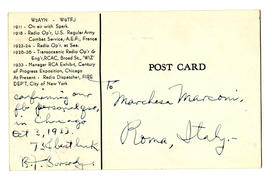 W9AYN - W9TFJ
1911 - On air with Spark.
1918 - Radio Op'r, U.S. Regular Army
Combat Service, A.E.F., France
1923-24 - Radio Op'r, at Sea.
1926-30 - Transoceanic Radio Op'r &
Eng'r, RCAC, Broad St., "WIZ"
1933 - Manager RCA Exhibit, Century
of Progress Exposition, Chicago
At Present - Radio Dispatcher, FIRE
DEP'T, City of New York
Confirming our
personal qso,
in Chicago
Oct 2, 1933.
POST CARD
To
Marchesa Marconi,
Roma, Italy.-